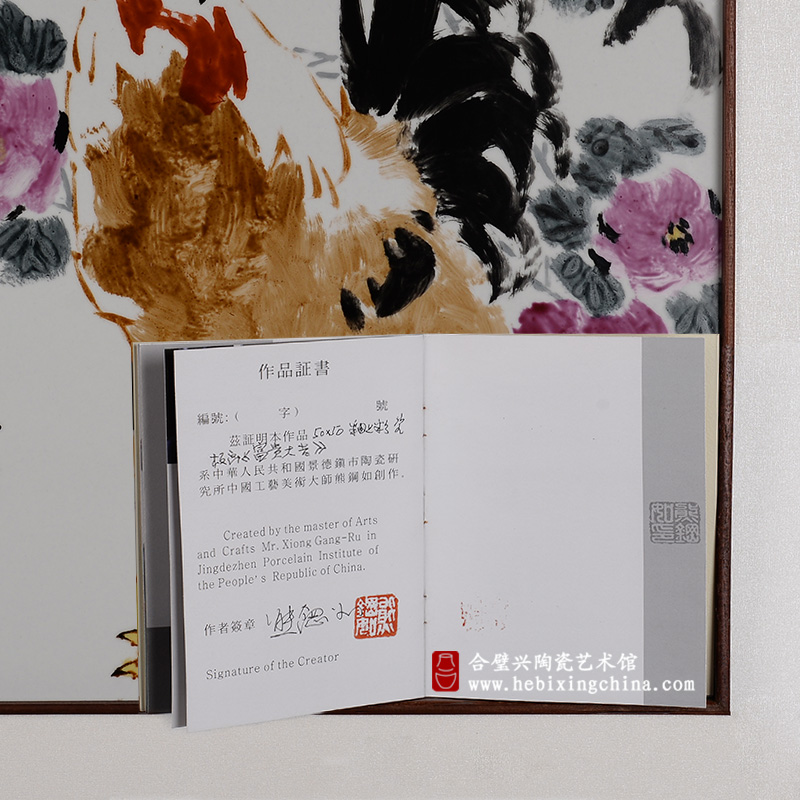 作品証書
編號:(　　字)　　　　號
茲証明本作品50×50釉上彩瓷
板画《富贵大吉》
系中華人民共和國景德鎮市陶瓷研
究所中國工藝美術大師熊鋼如創作。
Created by the master of Arts
and Crafts Mr. Xiong Gang-Ru in
Jingdezhen Porcelain Institute of
the People's Republic of China.
作者簽章 熊鋼如
Signature of the Creator
合璧兴陶瓷艺术馆
www.hebixingchina.com